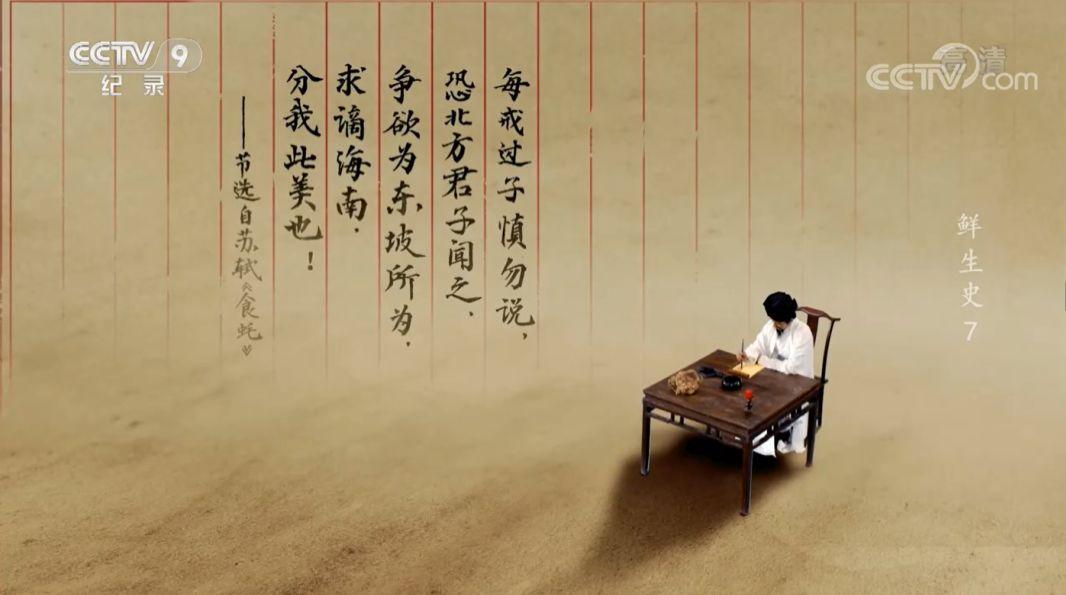 CCTV 9
纪录
高清
CCTV.com
每戒过子慎勿说，
恐北方君子闻之、
争欲为东坡所为，
求谪海南，
分我此美也！
——节选自苏轼《食蚝》
鲜生史 7